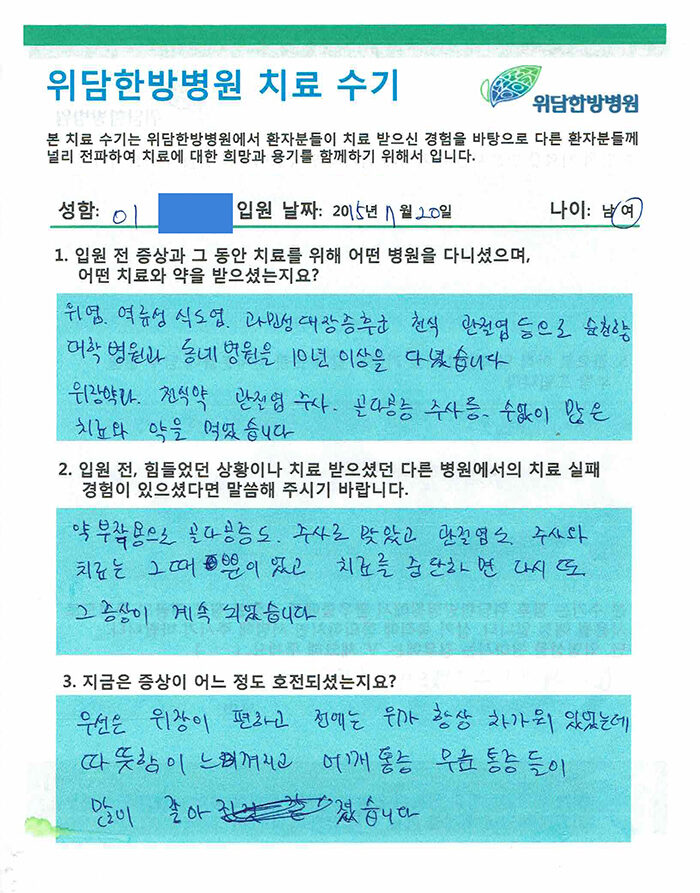 위담한방병원 치료 수기
위담한방병원
본 치료 수기는 위담한방병원에서 환자분들이 치료 받으신 경험을 바탕으로 다른 환자분들께
널리 전파하여 치료에 대한 희망과 용기를 함께하기 위해서 입니다.
성함: 이 입원 날짜: 2015년 7월 20일 나이: 남 여
1. 입원 전 증상과 그 동안 치료를 위해 어떤 병원을 다니셨으며,
어떤 치료와 약을 받으셨는지요?
위염. 역류성 식도염. 과민성대장증후군 천식 관절염 등으로 순천향
대학 병원과 동네 병원을 10년 이상을 다녔습니다
위장약과. 천식약 관절염 주사. 골다공증 주사를. 수없이 많은
치료와 약을 먹었습니다
2. 입원 전, 힘들었던 상황이나 치료 받으셨던 다른 병원에서의 치료 실패
경험이 있으셨다면 말씀해 주시기 바랍니다.
약 부작용으로 골다공증도. 주사로 맞았고 관절염도 주사와
치료는 그때 뿐이 었고 치료를 중단하면 다시 또
그 증상이 계속 되었습니다
3. 지금은 증상이 어느 정도 호전되셨는지요?
우선은 위장이 편하고 전에는 위가 항상 차가워 있었는데
따뜻함이 느껴지고 어깨통증 무릎 통증 들이
많이 좋아 졌습니다